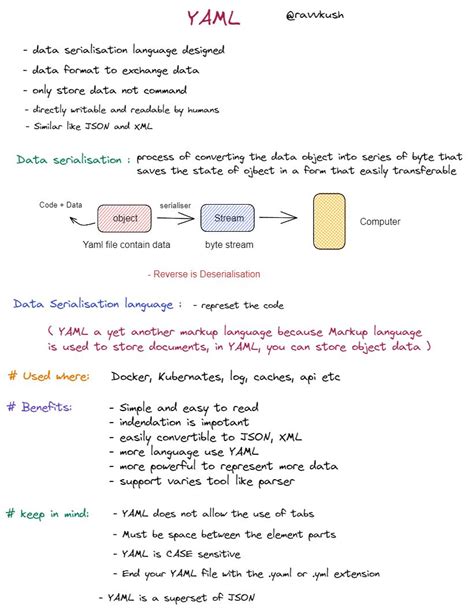 YAML
@ravvkush
- data serialisation language designed
- data format to exchange data
- only store data not command
- directly writable and readable by humans
- Similar like JSON and XML
Data serialisation : process of converting the data object into series of byte that
saves the state of ojbect in a form that easily transferable
Code + Data
serialiser
object
Stream
Computer
Yaml file contain data
byte stream
- Reverse is Deserialisation
Data Serialisation language : - represet the code
( YAML a yet another markup language because Markup language
is used to store documents, in YAML, you can store object data )
# Used where: Docker, Kubernates, log, caches, api etc
# Benefits: - Simple and easy to read
- indendation is impotant
- easily convertible to JSON, XML
- more language use YAML
- more powerful to represent more data
- support varies tool like parser
# keep in mind: - YAML does not allow the use of tabs
- Must be space between the element parts
- YAML is CASE sensitive
- End your YAML file with the .yaml or .yml extension
- YAML is a superset of JSON